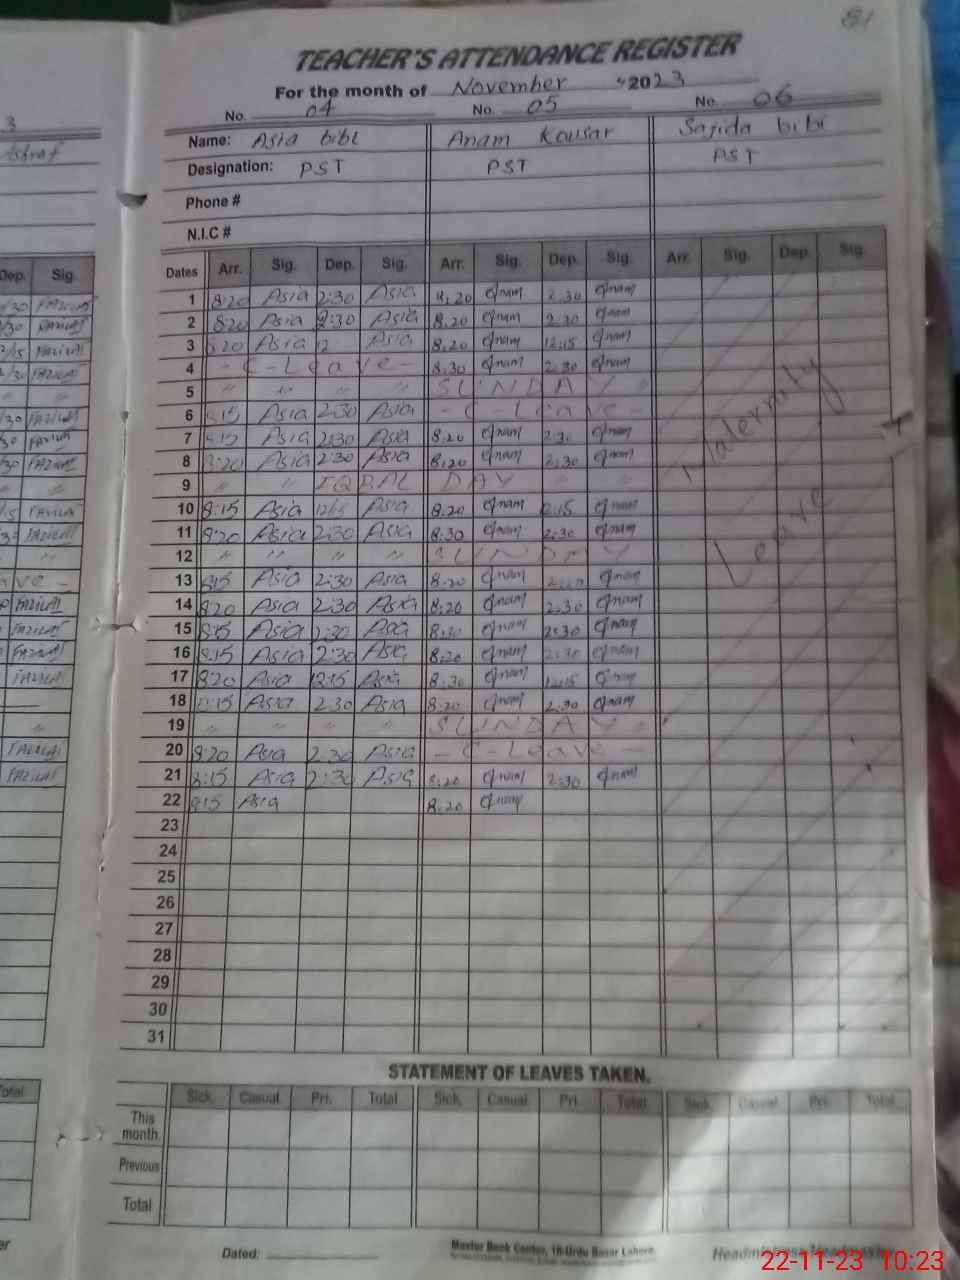 81
TEACHER'S ATTENDANCE REGISTER
For the month of November 2023
No. 04 No. 05 No. 06
Name: Asia bibi Anam Kousar Sajida bibi
Designation: PST PST PST
Phone #
N.I.C #
Dates Arr. Sig. Dep. Sig. Arr. Sig. Dep. Sig. Arr. Sig. Dep. Sig.
1 8:20 Asia 2:30 Asia 8.20 Anam 2.30 Anam
2 8:20 Asia 2:30 Asia 8.20 Anam 2.30 Anam
3 8:20 Asia 12 Asia 8.20 Anam 12:15 Anam
4 - C-Leave - 8.30 Anam 2.30 Anam
5 " " " " SUNDAY
6 8:15 Asia 2:30 Asia - C-Leave -
7 8:15 Asia 2:30 Asia 8.20 Anam 2:3 Anam
8 8:20 Asia 2:30 Asia 8.20 Anam 2:30 Anam
9 " " IQBAL DAY " "
10 8:15 Asia Asia 8.20 Anam Anam
11 8:20 Asia 2:30 Asia 8:30 Anam 2:30 Anam
12 " " " " SUNDAY
13 8:15 Asia 2:30 Asia 8.20 Anam Anam
14 8:20 Asia 2:30 Asia 8.20 Anam 2.30 Anam
15 8:15 Asia 2:30 Asia 8:30 Anam 2:30 Anam
16 8:15 Asia 2:30 Asia 8.20 Anam 2:30 Anam
17 8:20 Asia 12:15 Asia 8.30 Anam 12:15 Anam
18 8:15 Asia 2:30 Asia 8:20 Anam 2:30 Anam
19 " " " " SUNDAY "
20 8:20 Asia 2:30 Asia - C-Leave -
21 8:15 Asia 2:30 Asia 8.20 Anam 2:30 Anam
22 8:15 Asia 8.20 Anam
23
24
25
26
27
28
29
30
31
Maternity
Leave
STATEMENT OF LEAVES TAKEN.
Sick. Casual. Pri. Total Sick. Casual Pri. Total Sick. Casual Pri. Total
This
month.
Previous
Total
Dated:
Master Book Center, 18-Urdu Bazar Lahore.
Headmistress/Headmaster
22-11-23 10:23